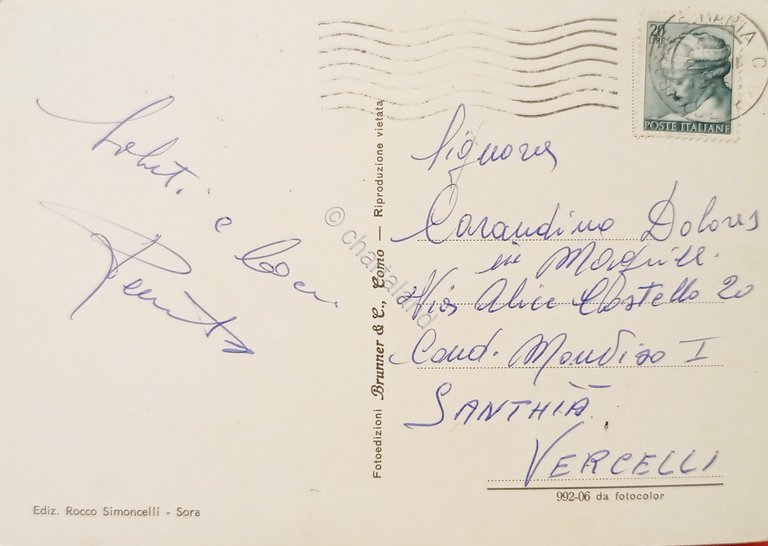 Saluti e baci
20
LIRE
POSTE ITALIANE
Signora
Carandino Dolores
in
Via Alice Castello 20
Cond. Mondizo I
SANTHIÀ
VERCELLI
992-06 da fotocolor
Fotoedizioni Brunner & C., Como — Riproduzione vietata
© chartaland
Ediz. Rocco Simoncelli - Sora